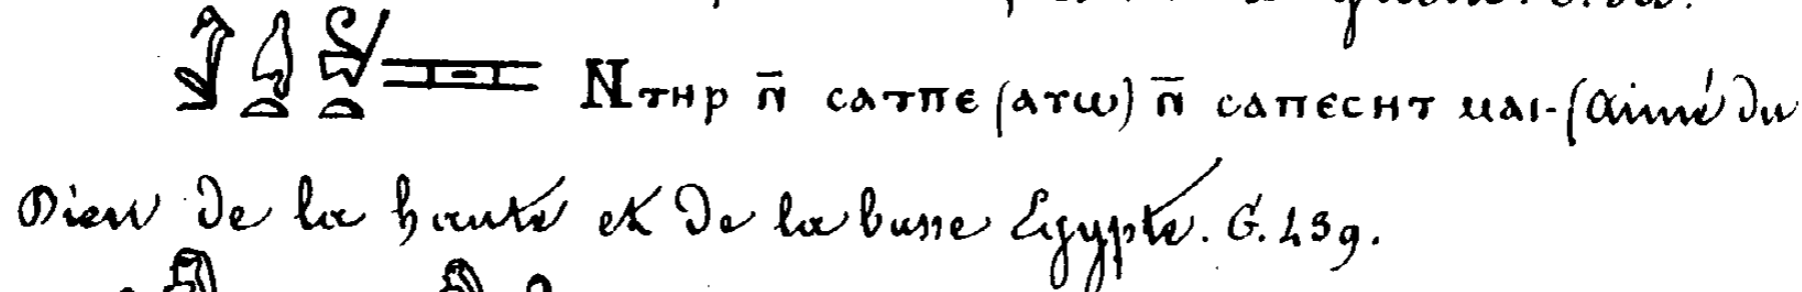 Ⲛⲧⲏⲣ ⲛ̄ ⲥⲁⲧⲡⲉ (ⲁⲩⲱ) ⲛ̄ ⲥⲁⲡⲉⲥⲏⲧ ⲙⲁⲓ-(aimé du
Dieu de la haute et de la basse Egypte. G. 439.